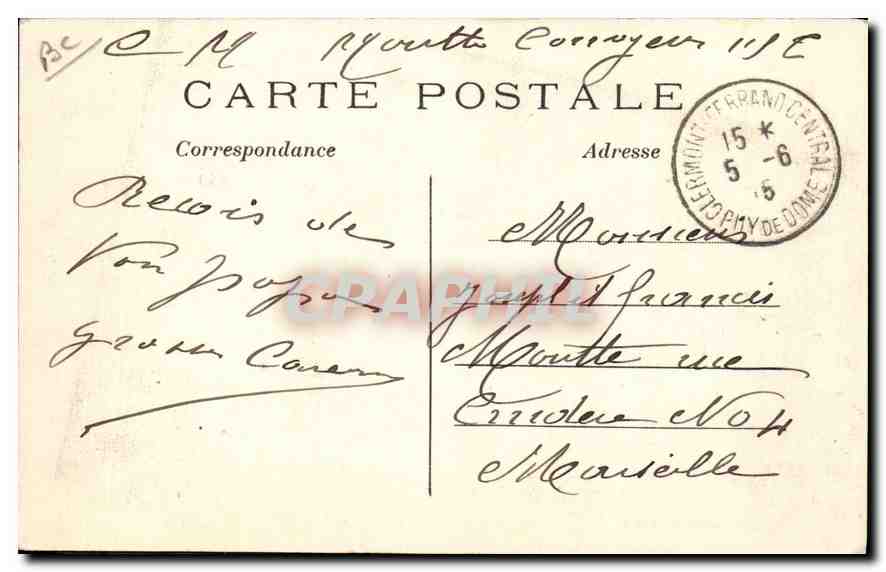 BC
C M Moutte Convoyeur 115 E
CARTE POSTALE
Correspondance
Adresse
CLERMONT-FERRAND CENTRAL
15 *
5 -6
15
PUY DE DOME
Recois de
ton papa
grosse Caresse
Monsieur
et Francis
Moutte rue
No 4
Marseille
CPAPHIL